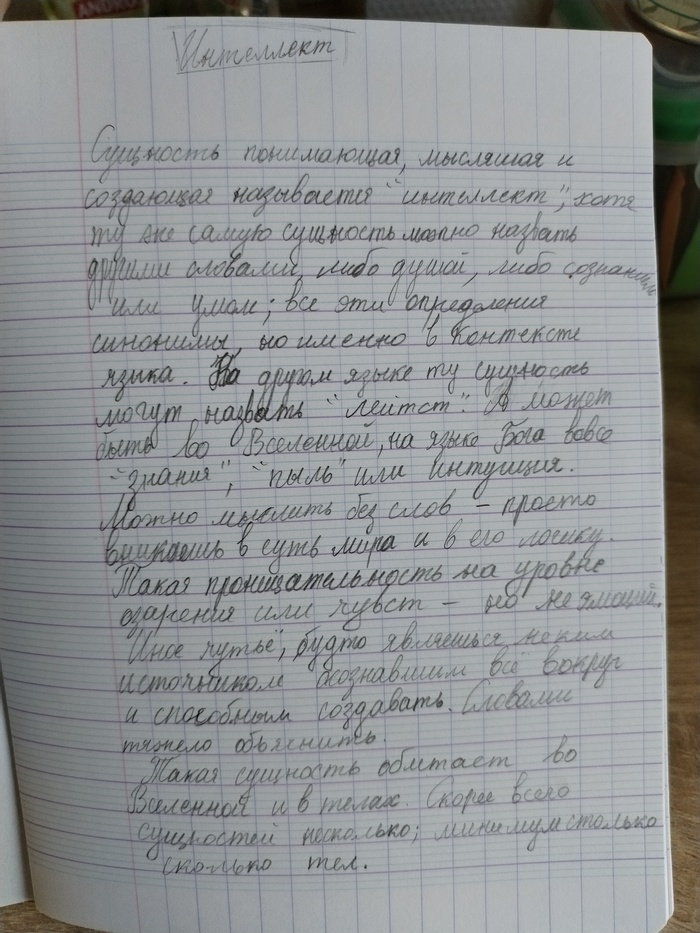 Интеллект
Сущность понимающая, мыслящая и
создающая называется "интеллект", хотя
ту же самую сущность можно назвать
другими словами, либо душой, либо сознанием
или умом; все эти определения
синонимы, но именно в контексте
языка. На другом языке ту сущность
могут назвать "лейтст". А может
быть во Вселенной, на языке Бога вовсе
"знания", "пыль" или интуиция.
Можно мыслить без слов – просто
вникаешь в суть мира и в его логику.
Такая проницательность на уровне
озарения или чувст – но не эмоций.
Иное чутьё, будто являешься неким
источником осознавшим всё вокруг
и способным создавать. Словами
тяжело объяснить.
Такая сущность обитает во
Вселенной и в телах. Скорее всего
сущностей несколько; минимум столько
сколько тел.